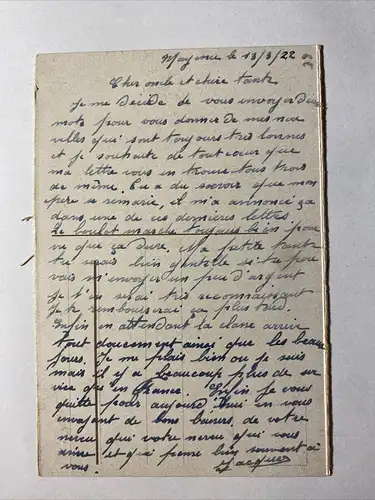 Mayence le 13/3/22
Cher oncle et chère tante
Je me décide de vous envoyer deux
mots pour vous donner de mes nou
velles qui sont toujours très bonnes
et je souhaite de tout cœur que
ma lettre vous en trouve tous trois
de même. Tu a du savoir que mon
père se remarie, il m'a annoncé ça
dans une de ces dernières lettres.
Le boulot marche toujours bien pour
vu que ça dure. Ma petite tante
tu serais bien gentille si tu pou
vais m'envoyer un peu d'argent
je t'en serai très reconnaissant
Je te rembourserai ça plus tard.
Enfin en attendant la classe arrive
tout doucement ainsi que les beaux
jours. Je me plais bien ou je suis
mais il y a beaucoup plus de ser
vice que en France. Enfin je vous
quitte pour aujourd'hui en vous
envoyant de bons baisers, de votre
neveu qui votre neveu qui vous
aime et qui pense bien souvent à
vous. Jacques